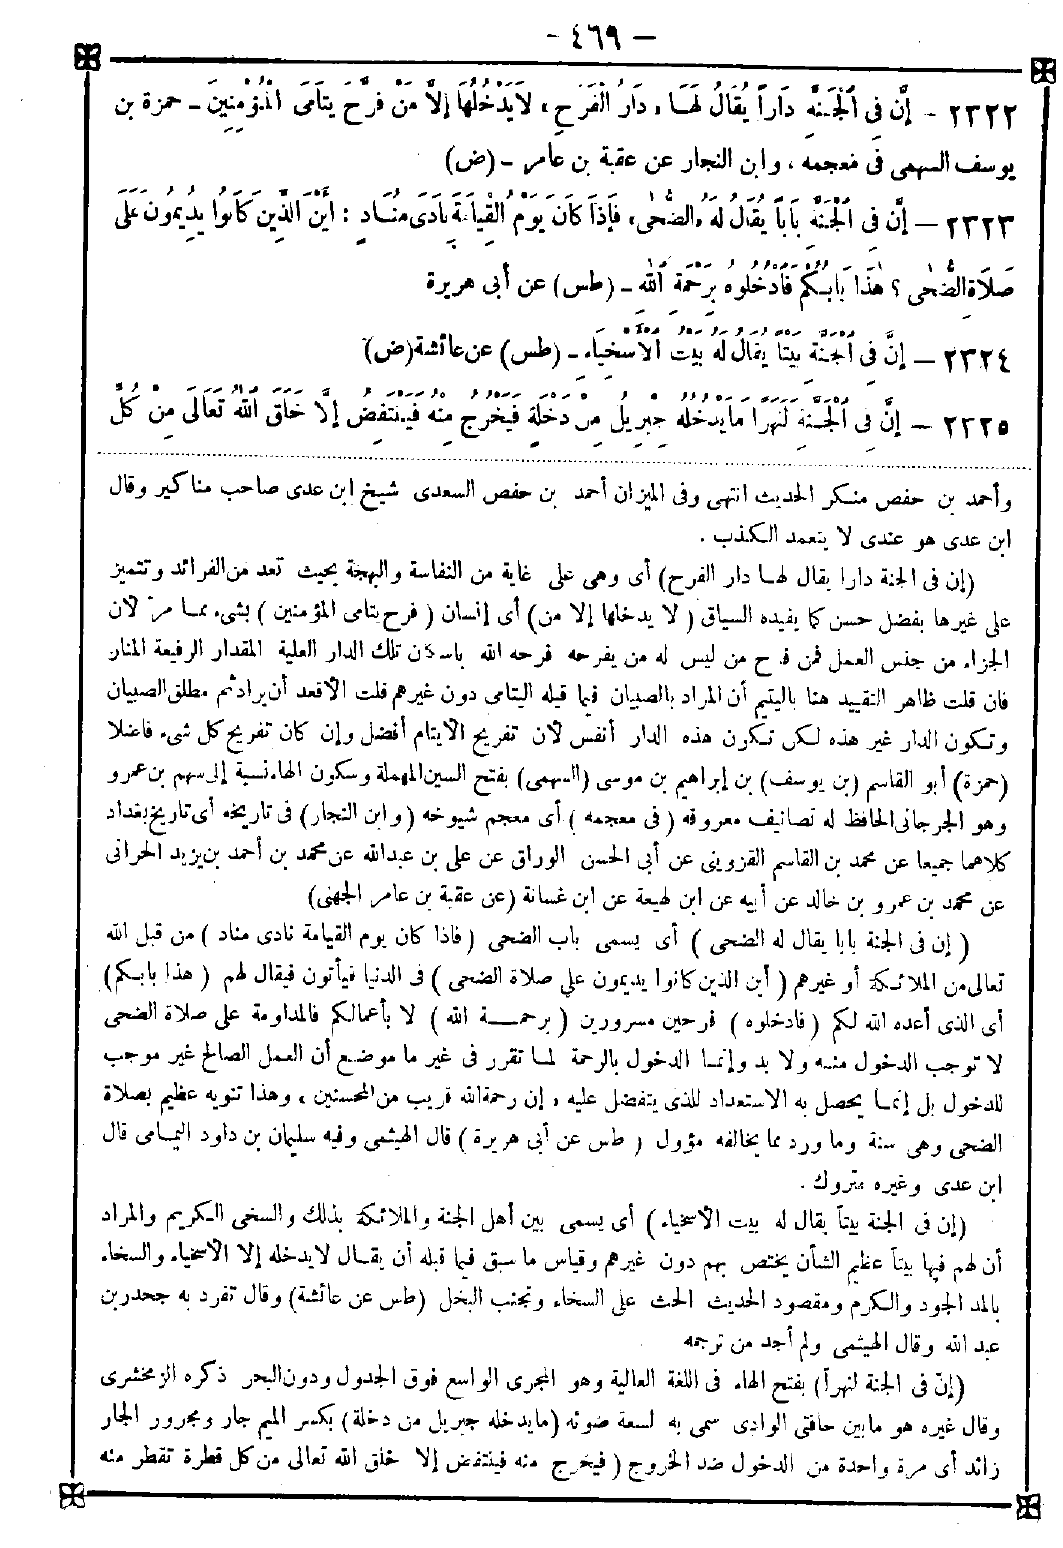 — ٤٦٩ —
٢٣٢٢ - إِنَّ فِى الْجَنَّةِ دَاراً يُقَالُ لَهَا «دَارُ الْفَرَحِ» لَايَدْخُلُهَا إِلَّا مَنْ فَرَّحَ يَتَامَى الْمُؤْمِنِينَ - حمزة بن
يوسف السهمى فى معجمه ، وابن النجار عن عقبة بن عامر - (ض)
٢٣٢٣ - إِنَّ فِى الْجَنَّةِ بَاباً يُقَالُ لَهُ «الضُّحَى» فَإِذَا كَانَ يَوْمُ الْقِيَامَةِ نَادَى مُنَادٍ : أَيْنَ الَّذِينَ كَانُوا يُدِيمُونَ عَلَى
صَلَاةِ الضُّحَى ؟ هٰذَا بَابُكُمْ فَادْخُلُوهُ بِرَحْمَةِ اللهِ - (طس) عن أبى هريرة
٢٣٢٤ - إِنَّ فِى الْجَنَّةِ بَيْتاً يُقَالُ لَهُ بَيْتُ الْأَسْخِيَاءِ - (طس) عن عائشة (ض)
٢٣٢٥ - إِنَّ فِى الْجَنَّةِ لَنَهَراً مَايَدْخُلُهُ جِبْرِيلُ مِنْ دَخْلَةٍ فَيَخْرُجُ مِنْهُ فَيَنْتَفِضُ إِلَّا خَلَقَ اللهُ تَعَالَى مِنْ كُلِّ
وأحمد بن حفص منكر الحديث انتهى وفى الميزان أحمد بن حفص السعدى شيخ ابن عدى صاحب مناكير وقال
ابن عدى هو عندى لا يتعمد الكذب .
(إن فى الجنة دارا يقال لها دار الفرح) أى وهى على غاية من النفاسة والبهجة بحيث تعد من الفرائد وتتميز
على غيرها بفضل حسن كما يفيده السياق ( لا يدخلها إلا من) أى إنسان ( فرح يتامى المؤمنين ) بشىء مما مرّ لأن
الجزاء من جنس العمل فمن فرح من ليس له من يفرحه فرحه الله باسكان تلك الدار العلية المقدار الرفيعة المنار
فان قلت ظاهر التقييد هنا باليتيم أن المراد بالصبيان فيما قبله اليتامى دون غيرهم قلت الأقعد أن يراد ثم مطلق الصبيان
وتكون الدار غير هذه لكن تكون هذه الدار أنفس لأن تفريح الأيتام أفضل وإن كان تفريح كل شىء فاضلا
(حمزة) أبو القاسم (بن يوسف) بن إبراهيم بن موسى (السهمى) بفتح السين المهملة وسكون الهاء نسبة إلى سهم بن عمرو
وهو الجرجانى الحافظ له تصانيف معروفة ( فى معجمه ) أى معجم شيوخه (وابن النجار) فى تاريخه أى تاريخ بغداد
كلاهما جميعا عن محمد بن القاسم القزوينى عن أبى الحسن الوراق عن على بن عبدالله عن محمد بن أحمد بن يزيد الحرانى
عن محمد بن عمرو بن خالد عن أبيه عن ابن لهيعة عن ابن غسانة (عن عقبة بن عامر الجهنى)
( إن فى الجنة بابا يقال له الضحى ) أى يسمى باب الضحى ( فاذا كان يوم القيامة نادى مناد ) من قبل الله
تعالى من الملائكة أو غيرهم ( أين الذين كانوا يديمون على صلاة الضحى ) فى الدنيا فيأتون فيقال لهم ( هذا بابكم)
أى الذى أعده الله لكم ( فادخلوه ) فرحين مسرورين ( برحمة الله ) لا بأعمالكم فالمداومة على صلاة الضحى
لا توجب الدخول منه ولا بد وإنما الدخول بالرحمة لما تقرر فى غير ما موضع أن العمل الصالح غير موجب
للدخول بل إنما يحصل به الاستعداد للذى يتفضل عليه ، إن رحمة الله قريب من المحسنين ، وهذا تنويه عظيم بصلاة
الضحى وهى سنة وما ورد مما يخالفه مؤول ( طس عن أبى هريرة ) قال الهيثمى وفيه سليمان بن داود اليمامى قال
ابن عدى وغيره متروك .
(إن فى الجنة بيتاً يقال له بيت الأسخياء) أى يسمى بين أهل الجنة والملائكة بذلك والسخى الكريم والمراد
أن لهم فيها بيتاً عظيم الشأن يختص بهم دون غيرهم وقياس ما سبق فيما قبله أن يقال لايدخله إلا الأسخياء والسخاء
بالمد الجود والكرم ومقصود الحديث الحث على السخاء وتجنب البخل (طس عن عائشة) وقال تفرد به جحدر بن
عبد الله وقال الهيثمى ولم أجد من ترجمه
(إن فى الجنة لنهراً) بفتح الهاء فى اللغة العالية وهو المجرى الواسع فوق الجدول ودون البحر ذكره الزمخشرى
وقال غيره هو مابين حافتى الوادى سمى به لسعة ضوئه (مايدخله جبريل من دخلة) بكسر الميم جار ومجرور الجار
زائد أى مرة واحدة من الدخول ضد الخروج ( فيخرج منه فينتفض إلا خلق الله تعالى من كل قطرة تقطر منه